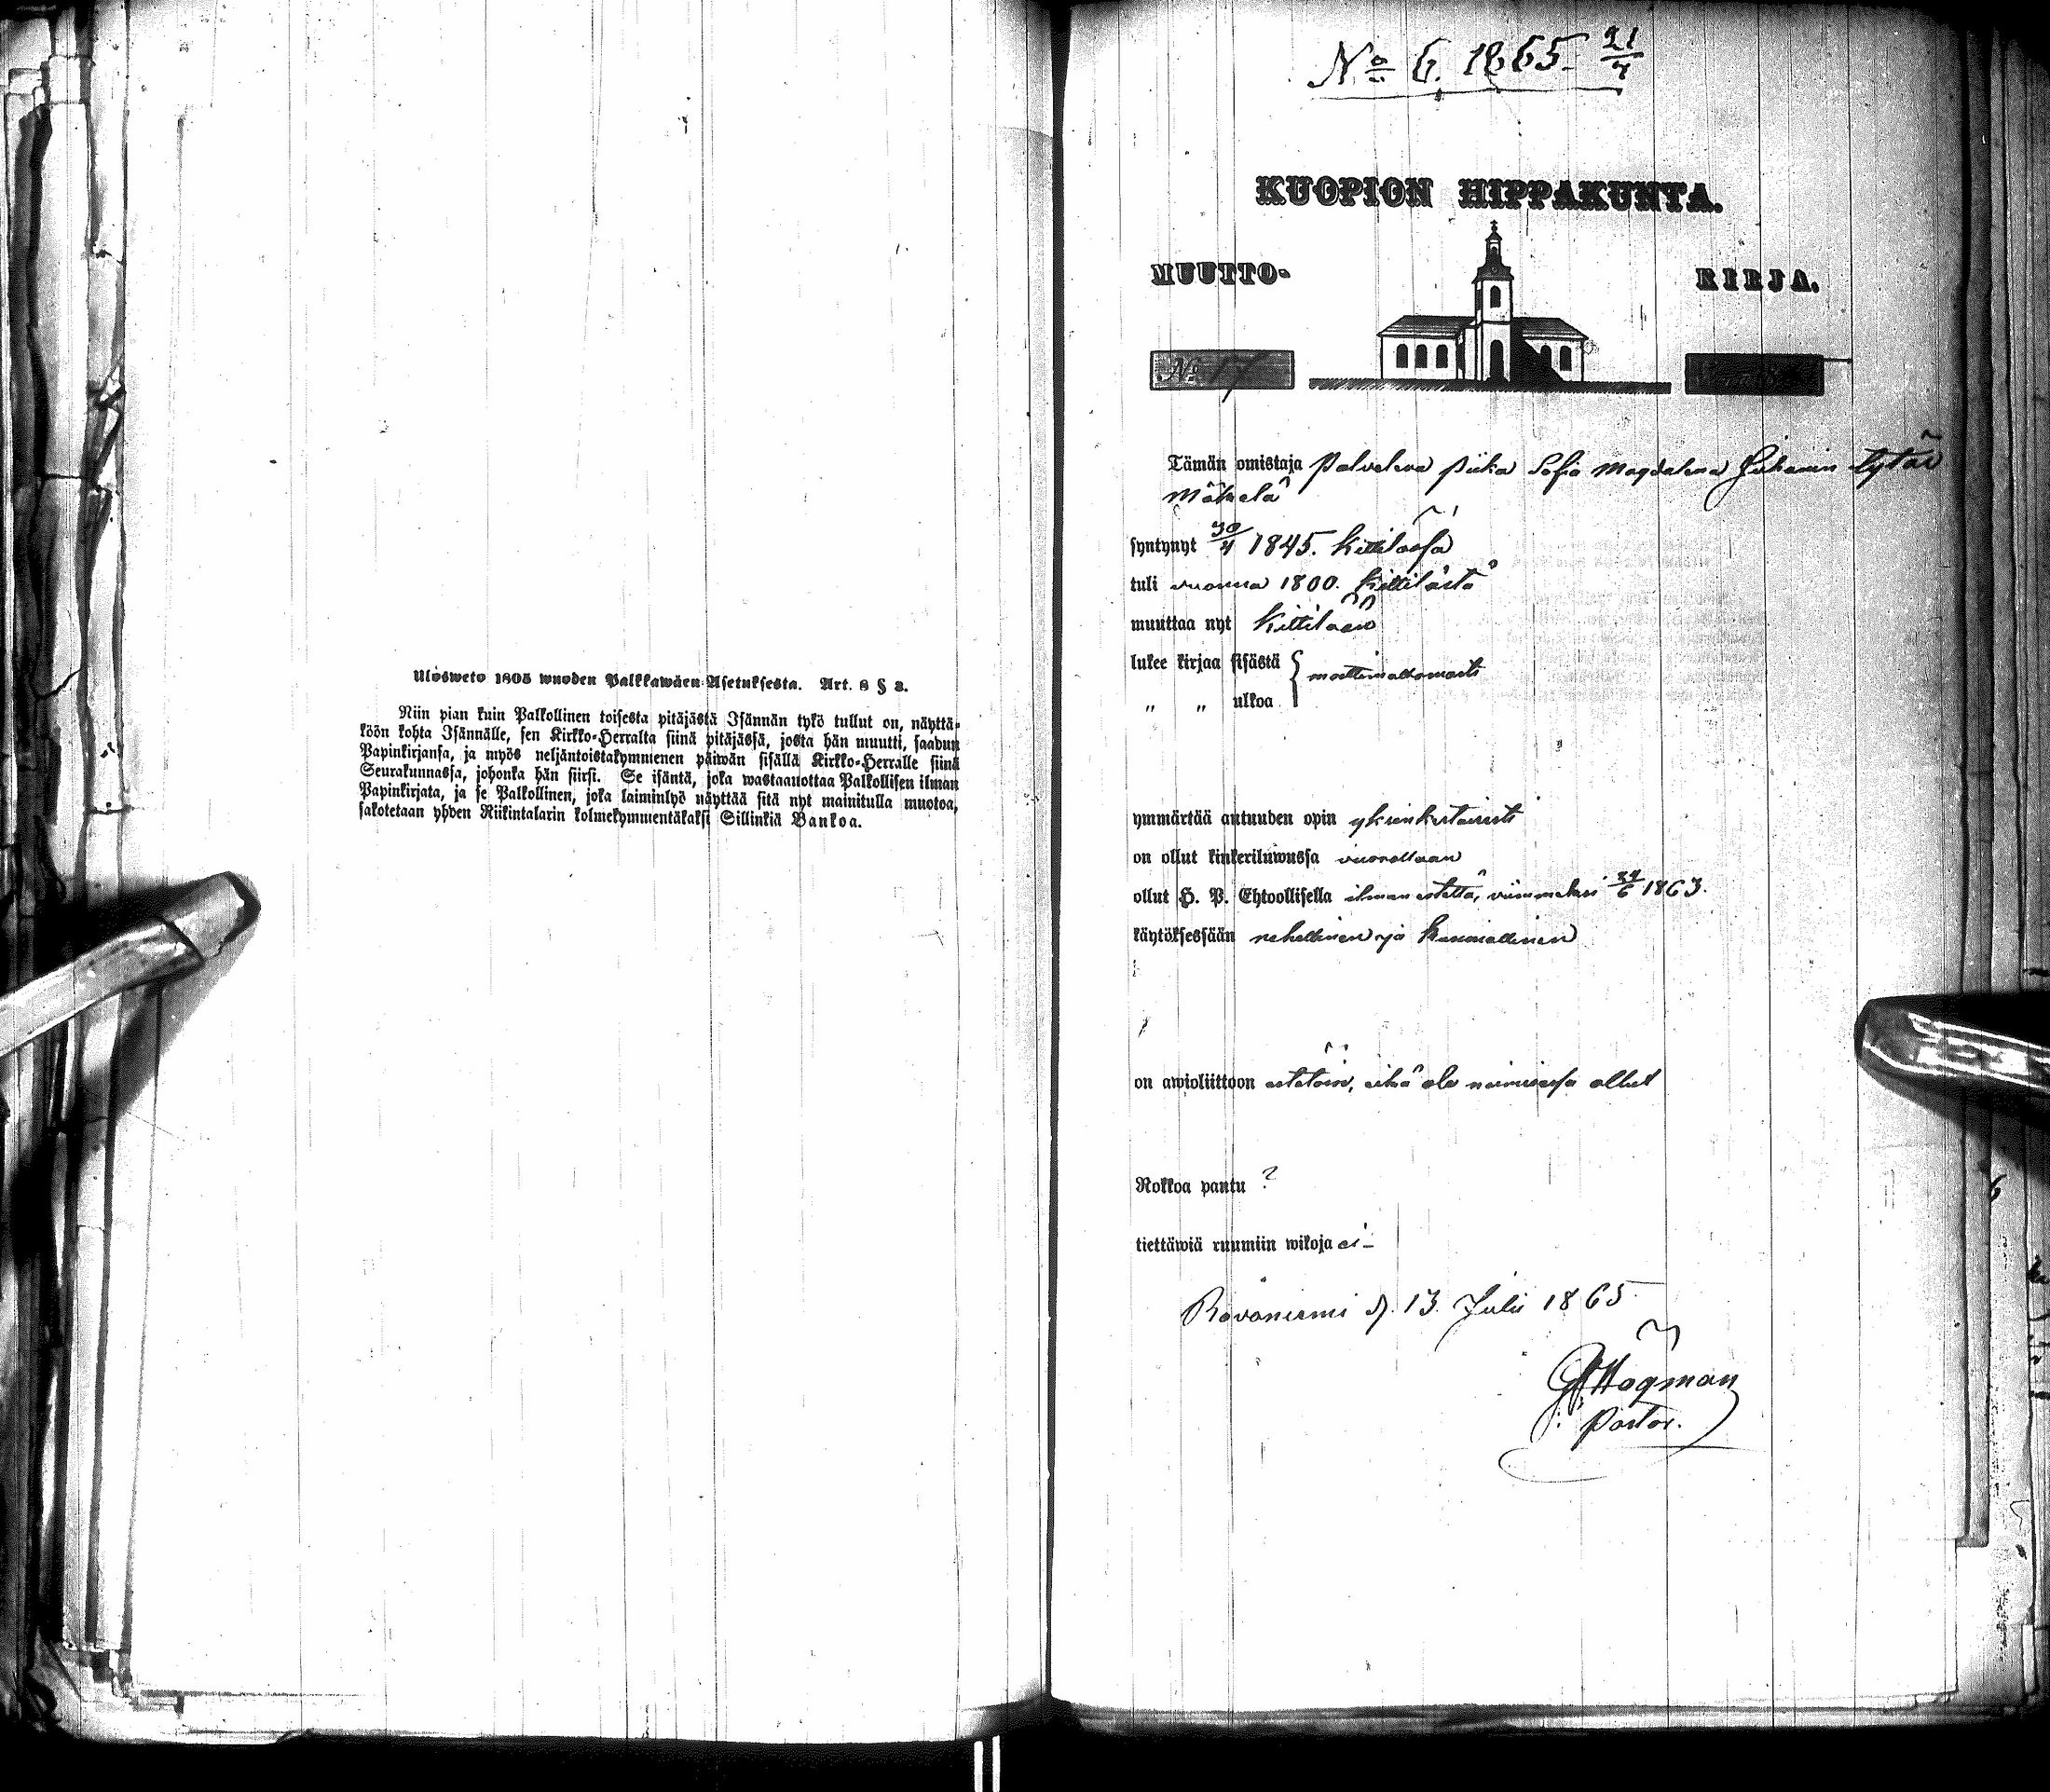 Ulosweto 1805 wuoden Palkkawäen-Asetuksesta. Art. 8 § 3.
Niin pian kuin Palkollinen toisesta pitäjästä Isännän tykö tullut on, näyttä-
köön kohta Isännälle, sen Kirkko-Herralta siinä pitäjässä, josta hän muutti, saadun
Papinkirjansa, ja myös neljäntoistakymmenen päiwän sisällä Kirkko-Herralle siinä
Seurakunnassa, johonka hän siirsi. Se isäntä, joka wastaanottaa Palkollisen ilman
Papinkirjata, ja se Palkollinen, joka laiminlyö näyttää sitä nyt mainitulla muotoa,
sakotetaan yhden Riikintalarin kolmekymmentäkaksi Sillinkiä Bankoa.
No 6. 1865. 21/7
KUOPION HIPPAKUNTA.
MUUTTO- KIRJA.
No 17
Tämän omistaja palveleva piika Sofia Magdalena Juhanin tytär
Mäkelä
syntynyt 30/4 1845. Kittilässä
tuli vuonna 1800. Kittilästä
muuttaa nyt Kittilään
lukee kirjaa sisästä } moittimattomasti
„ „ ulkoa
ymmärtää autuuden opin yksinkertaisesti
on ollut kinkeriluwussa vuorollaan
ollut H. P. Ehtoollisella ilman estettä, viimmeksi 24/6 1863.
käytöksessään rehellinen ja kunniallinen
on awioliittoon estetöin, eikä ole naimisessa ollut
Rokkoa pantu ?
tiettäwiä ruumiin wikoja ei -
Rovaniemi d. 13. Julii 1865.
Högman
Pastor.